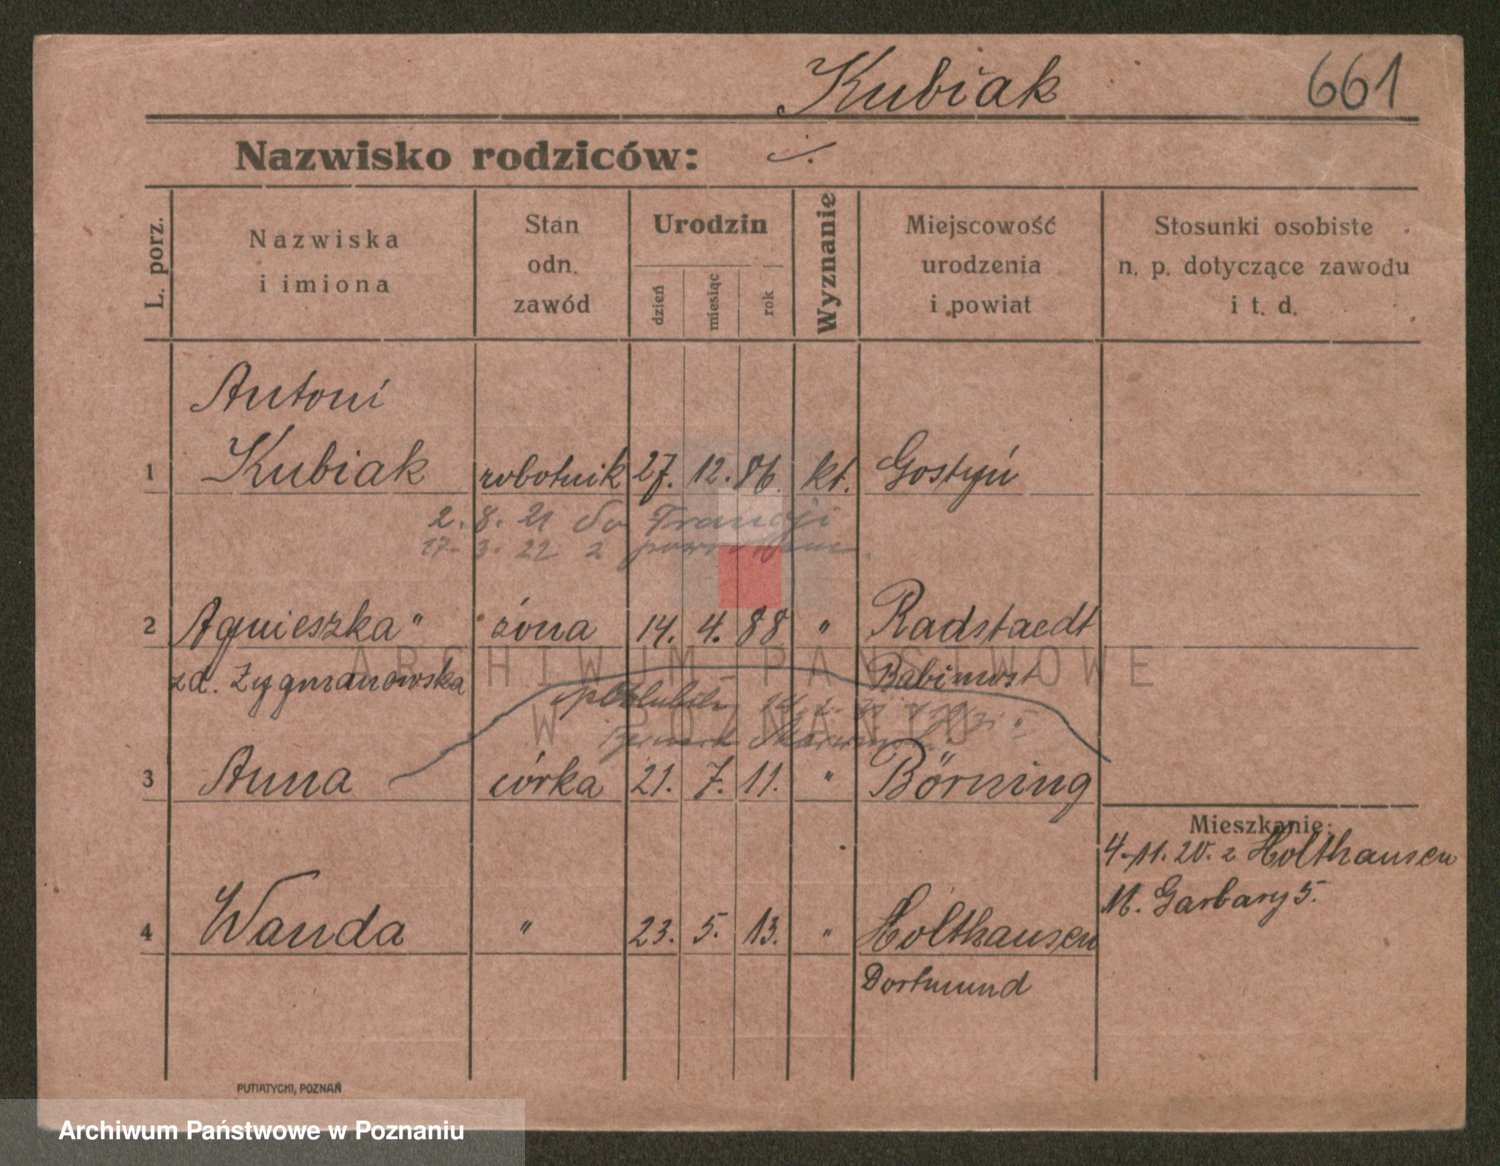 Kubiak
661
Nazwisko rodziców:
L. porz.
Nazwiska
i imiona
Stan
odn.
zawód
Urodzin
dzień
miesiąc
rok
Wyznanie
Miejscowość
urodzenia
i powiat
Stosunki osobiste
n. p. dotyczące zawodu
i t. d.
Antoni
1 Kubiak robotnik 27. 12. 86. kt. Gostyń
2. 8. 21 do Francji
17. 3. 22 z
2 Agnieszka " żona 14. 4. 88 " Radstaedt
zd. Zygmanowska Babimost
3 Anna córka 21. 7. 11. " Börning
Mieszkanie:
4-11. 20. z Holthausen
M. Garbary 5.
4 Wanda " 23. 5. 13. " Holthausen
Dortmund
PUTIATYCKI, POZNAŃ
ARCHIWUM PAŃSTWOWE
W POZNANIU
Archiwum Państwowe w Poznaniu